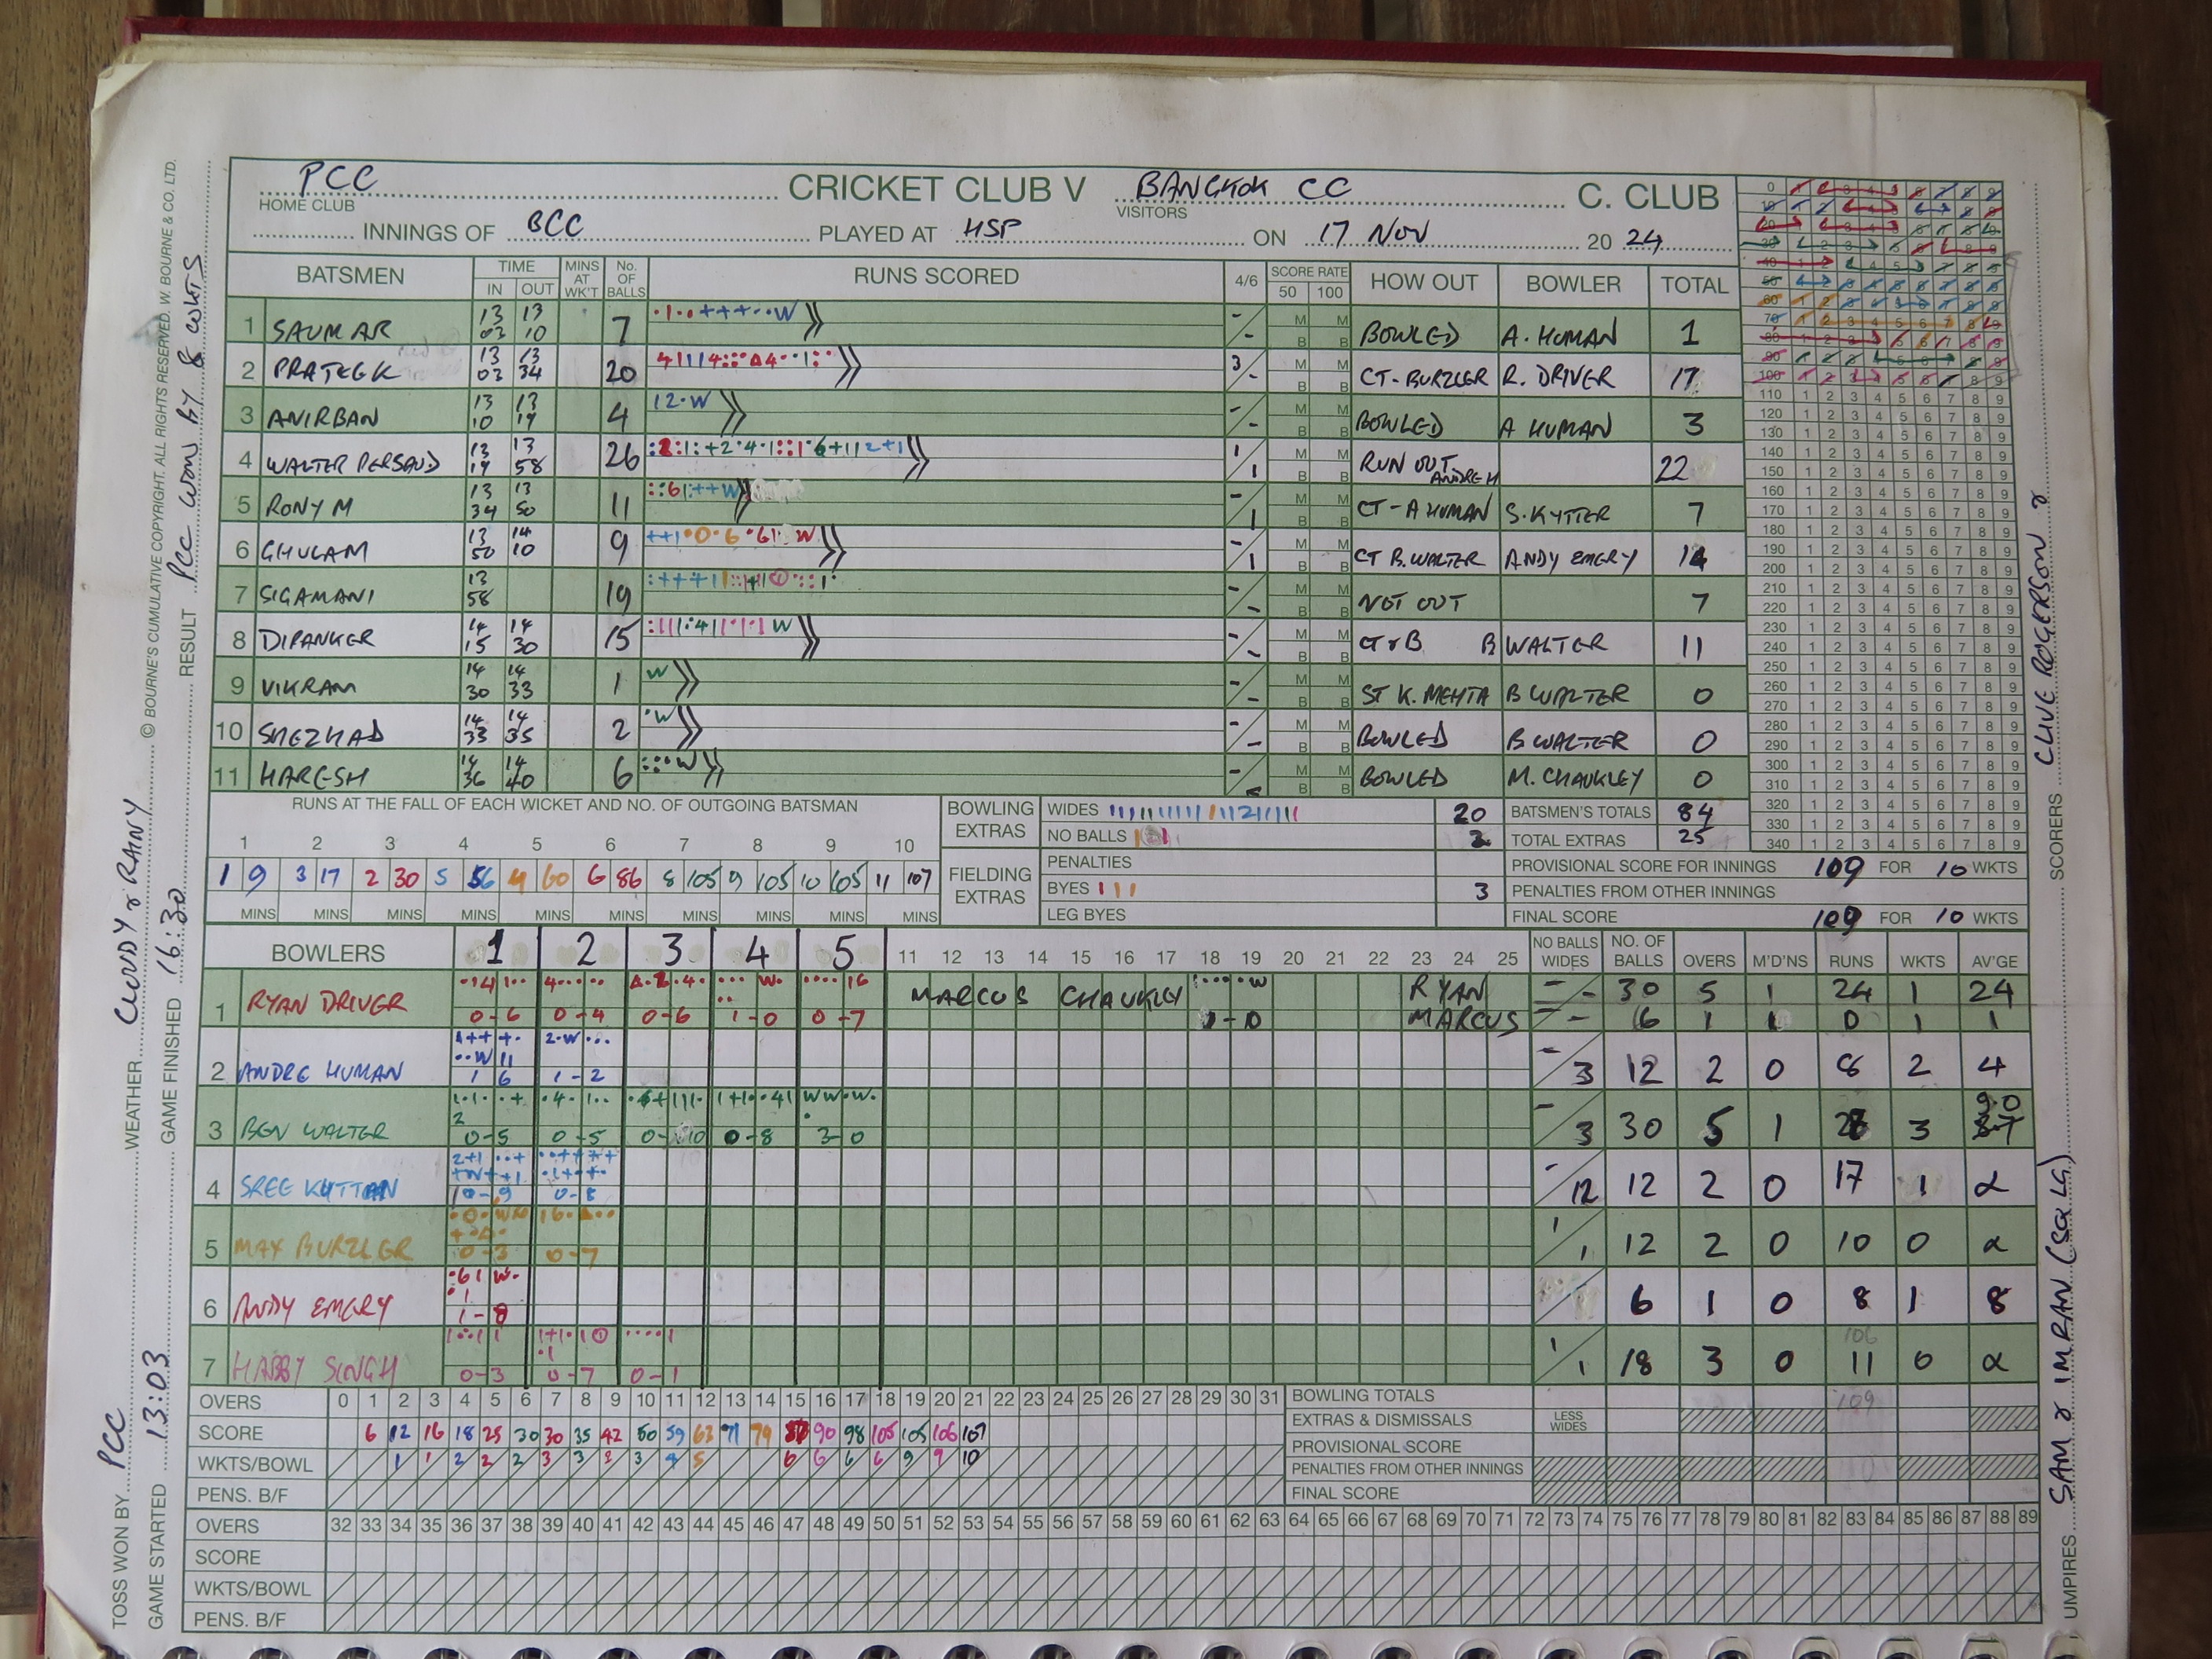 PCC CRICKET CLUB V BANGKOK CC C. CLUB
HOME CLUB VISITORS
INNINGS OF BCC PLAYED AT HSP ON 17 NOV 20 24
BATSMEN TIME IN OUT MINS AT WK'T No. OF BALLS RUNS SCORED 4/6 SCORE RATE 50 100 HOW OUT BOWLER TOTAL
1 SAUMAR 13 03 13 10 7 BOWLED A. HUMAN 1
2 PRATEEK 13 03 13 34 20 3/- CT-BURZLER R. DRIVER 17
3 ANIRBAN 13 10 13 19 4 12·W BOWLED A HUMAN 3
4 WALTER PERSAUD 13 19 13 58 26 1/1 RUN OUT ANDRE H 22
5 RONY M 13 34 13 50 11 -/1 CT-A HUMAN S. KYTTER 7
6 GHULAM 13 50 14 10 9 -/1 CT B. WALTER ANDY EMERY 14
7 SIGAMANI 13 58 19 NOT OUT 7
8 DIPANKER 14 15 14 30 15 CT & B B WALTER 11
9 VIKRAM 14 30 14 33 1 W ST K. MEHTA B WALTER 0
10 SHEZHAD 14 33 14 35 2 ·W BOWLED B WALTER 0
11 HARESH 14 36 14 40 6 BOWLED M. CHAUKLEY 0
RUNS AT THE FALL OF EACH WICKET AND NO. OF OUTGOING BATSMAN
1 2 3 4 5 6 7 8 9 10
1 9 3 17 2 30 5 56 4 60 6 86 8 105 9 105 10 105 11 107
MINS MINS MINS MINS MINS MINS MINS MINS MINS MINS
BOWLING EXTRAS WIDES 20
NO BALLS 2
FIELDING EXTRAS PENALTIES
BYES 3
LEG BYES
BATSMEN'S TOTALS 84
TOTAL EXTRAS 25
PROVISIONAL SCORE FOR INNINGS 109 FOR 10 WKTS
PENALTIES FROM OTHER INNINGS
FINAL SCORE 109 FOR 10 WKTS
BOWLERS 1 2 3 4 5 11 12 13 14 15 16 17 18 19 20 21 22 23 24 25 NO BALLS WIDES NO. OF BALLS OVERS M'D'NS RUNS WKTS AV'GE
1 RYAN DRIVER 0-6 0-4 0-6 1-0 0-7 MARCUS CHAUKLEY RYAN 30 5 1 24 1 24
MARCUS 6 1 1 0 1 1
2 ANDRE HUMAN 1 6 1-2 -/3 12 2 0 8 2 4
3 BEN WALTER 0-5 0-5 0-10 0-8 3-0 -/3 30 5 1 3 9.0
4 SREE KUTTAN 0-8 -/12 12 2 0 17 1 α
5 MAX BURZLER 0-3 0-7 1/1 12 2 0 10 0 α
6 ANDY EMERY 1-8 6 1 0 8 1 8
7 HABBY SINGH 0-3 0-7 0-1 1/1 18 3 0 11 0 α
OVERS 0 1 2 3 4 5 6 7 8 9 10 11 12 13 14 15 16 17 18 19 20 21 22 23 24 25 26 27 28 29 30 31
SCORE 6 12 16 18 25 30 30 35 42 50 59 62 71 79 90 98 105 105 106 107
WKTS/BOWL 1 1 2 2 2 3 3 3 3 4 5 6 6 6 6 9 9 10
PENS. B/F
BOWLING TOTALS 109
EXTRAS & DISMISSALS LESS WIDES
PROVISIONAL SCORE
PENALTIES FROM OTHER INNINGS
FINAL SCORE
OVERS 32 33 34 35 36 37 38 39 40 41 42 43 44 45 46 47 48 49 50 51 52 53 54 55 56 57 58 59 60 61 62 63 64 65 66 67 68 69 70 71 72 73 74 75 76 77 78 79 80 81 82 83 84 85 86 87 88 89
SCORE
WKTS/BOWL
PENS. B/F
TOSS WON BY PCC WEATHER CLOUDY & RAINY © BOURNE'S CUMULATIVE COPYRIGHT. ALL RIGHTS RESERVED. W. BOURNE & CO. LTD.
GAME STARTED 13:03 GAME FINISHED 16:30 RESULT PCC WON BY 8 WKTS
UMPIRES SAM & IMRAN (SQ LG) SCORERS CLIVE ROGERSON &